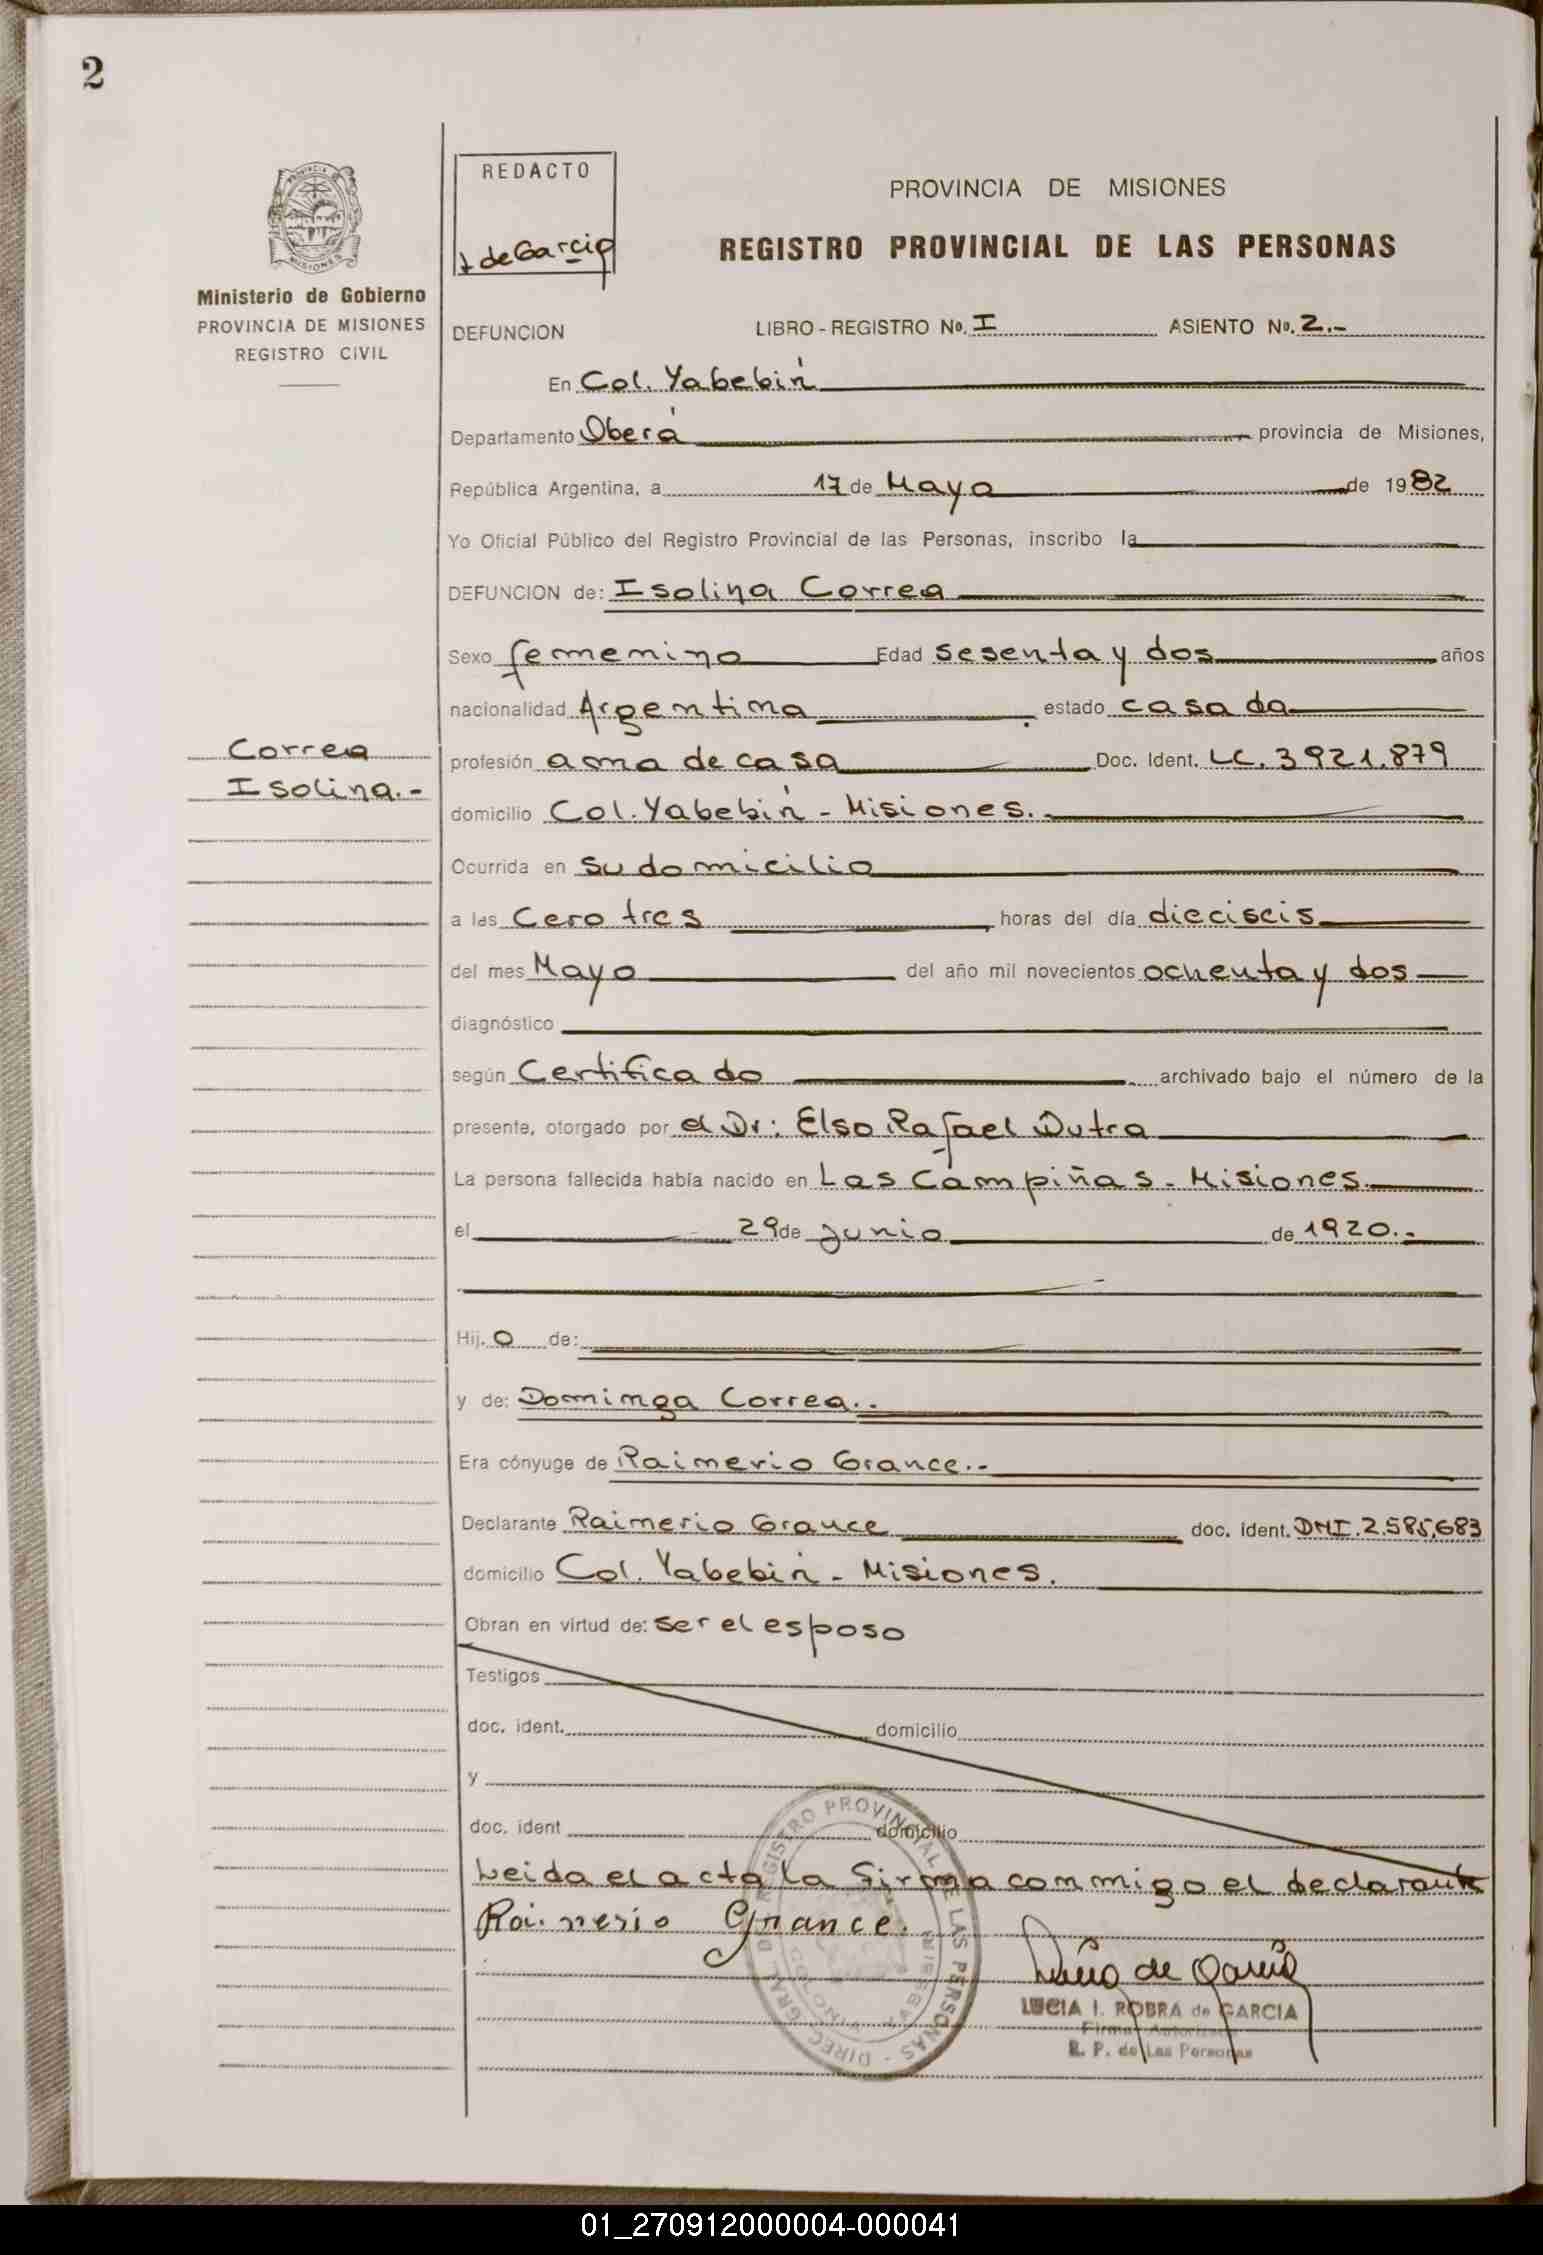 2
REDACTO
L de Garcia
PROVINCIA DE MISIONES
REGISTRO PROVINCIAL DE LAS PERSONAS
Ministerio de Gobierno
PROVINCIA DE MISIONES
REGISTRO CIVIL
DEFUNCION LIBRO - REGISTRO No. I ASIENTO No. 2.-
En Col. Yabebirí
Departamento Oberá provincia de Misiones,
República Argentina, a 17 de Mayo de 1982
Yo Oficial Público del Registro Provincial de las Personas, inscribo la
DEFUNCION de: Isolina Correa
Sexo femenino Edad sesenta y dos años
nacionalidad Argentina estado casada
Correa
Isolina.-
profesión ama de casa Doc. Ident. LC. 3921.879
domicilio Col. Yabebirí - Misiones.
Ocurrida en su domicilio
a las Cero tres horas del día dieciseis
del mes Mayo del año mil novecientos ochenta y dos
diagnóstico
según Certificado archivado bajo el número de la
presente, otorgado por el Dr: Elso Rafael Dutra
La persona fallecida había nacido en Las Campiñas - Misiones
el 29 de junio de 1920.-
Hij. o de:
y de: Dominga Correa.-
Era cónyuge de Raimerio Grance.-
Declarante Raimerio Grance doc. ident. DNI. 2.585.683
domicilio Col. Yabebirí - Misiones.
Obran en virtud de: ser el esposo
Testigos
doc. ident. domicilio
y
doc. ident domicilio
Leida el acta la firma conmigo el declarante
Raimerio Grance.
Lucia de Garcia
LUCIA I. ROBRA de GARCIA
Firma Autorizada
R. P. de Las Personas
DIREC. GRAL. DE REGISTRO PROVINCIAL DE LAS PERSONAS -
COLONIA YABEBIRI
01_270912000004-000041